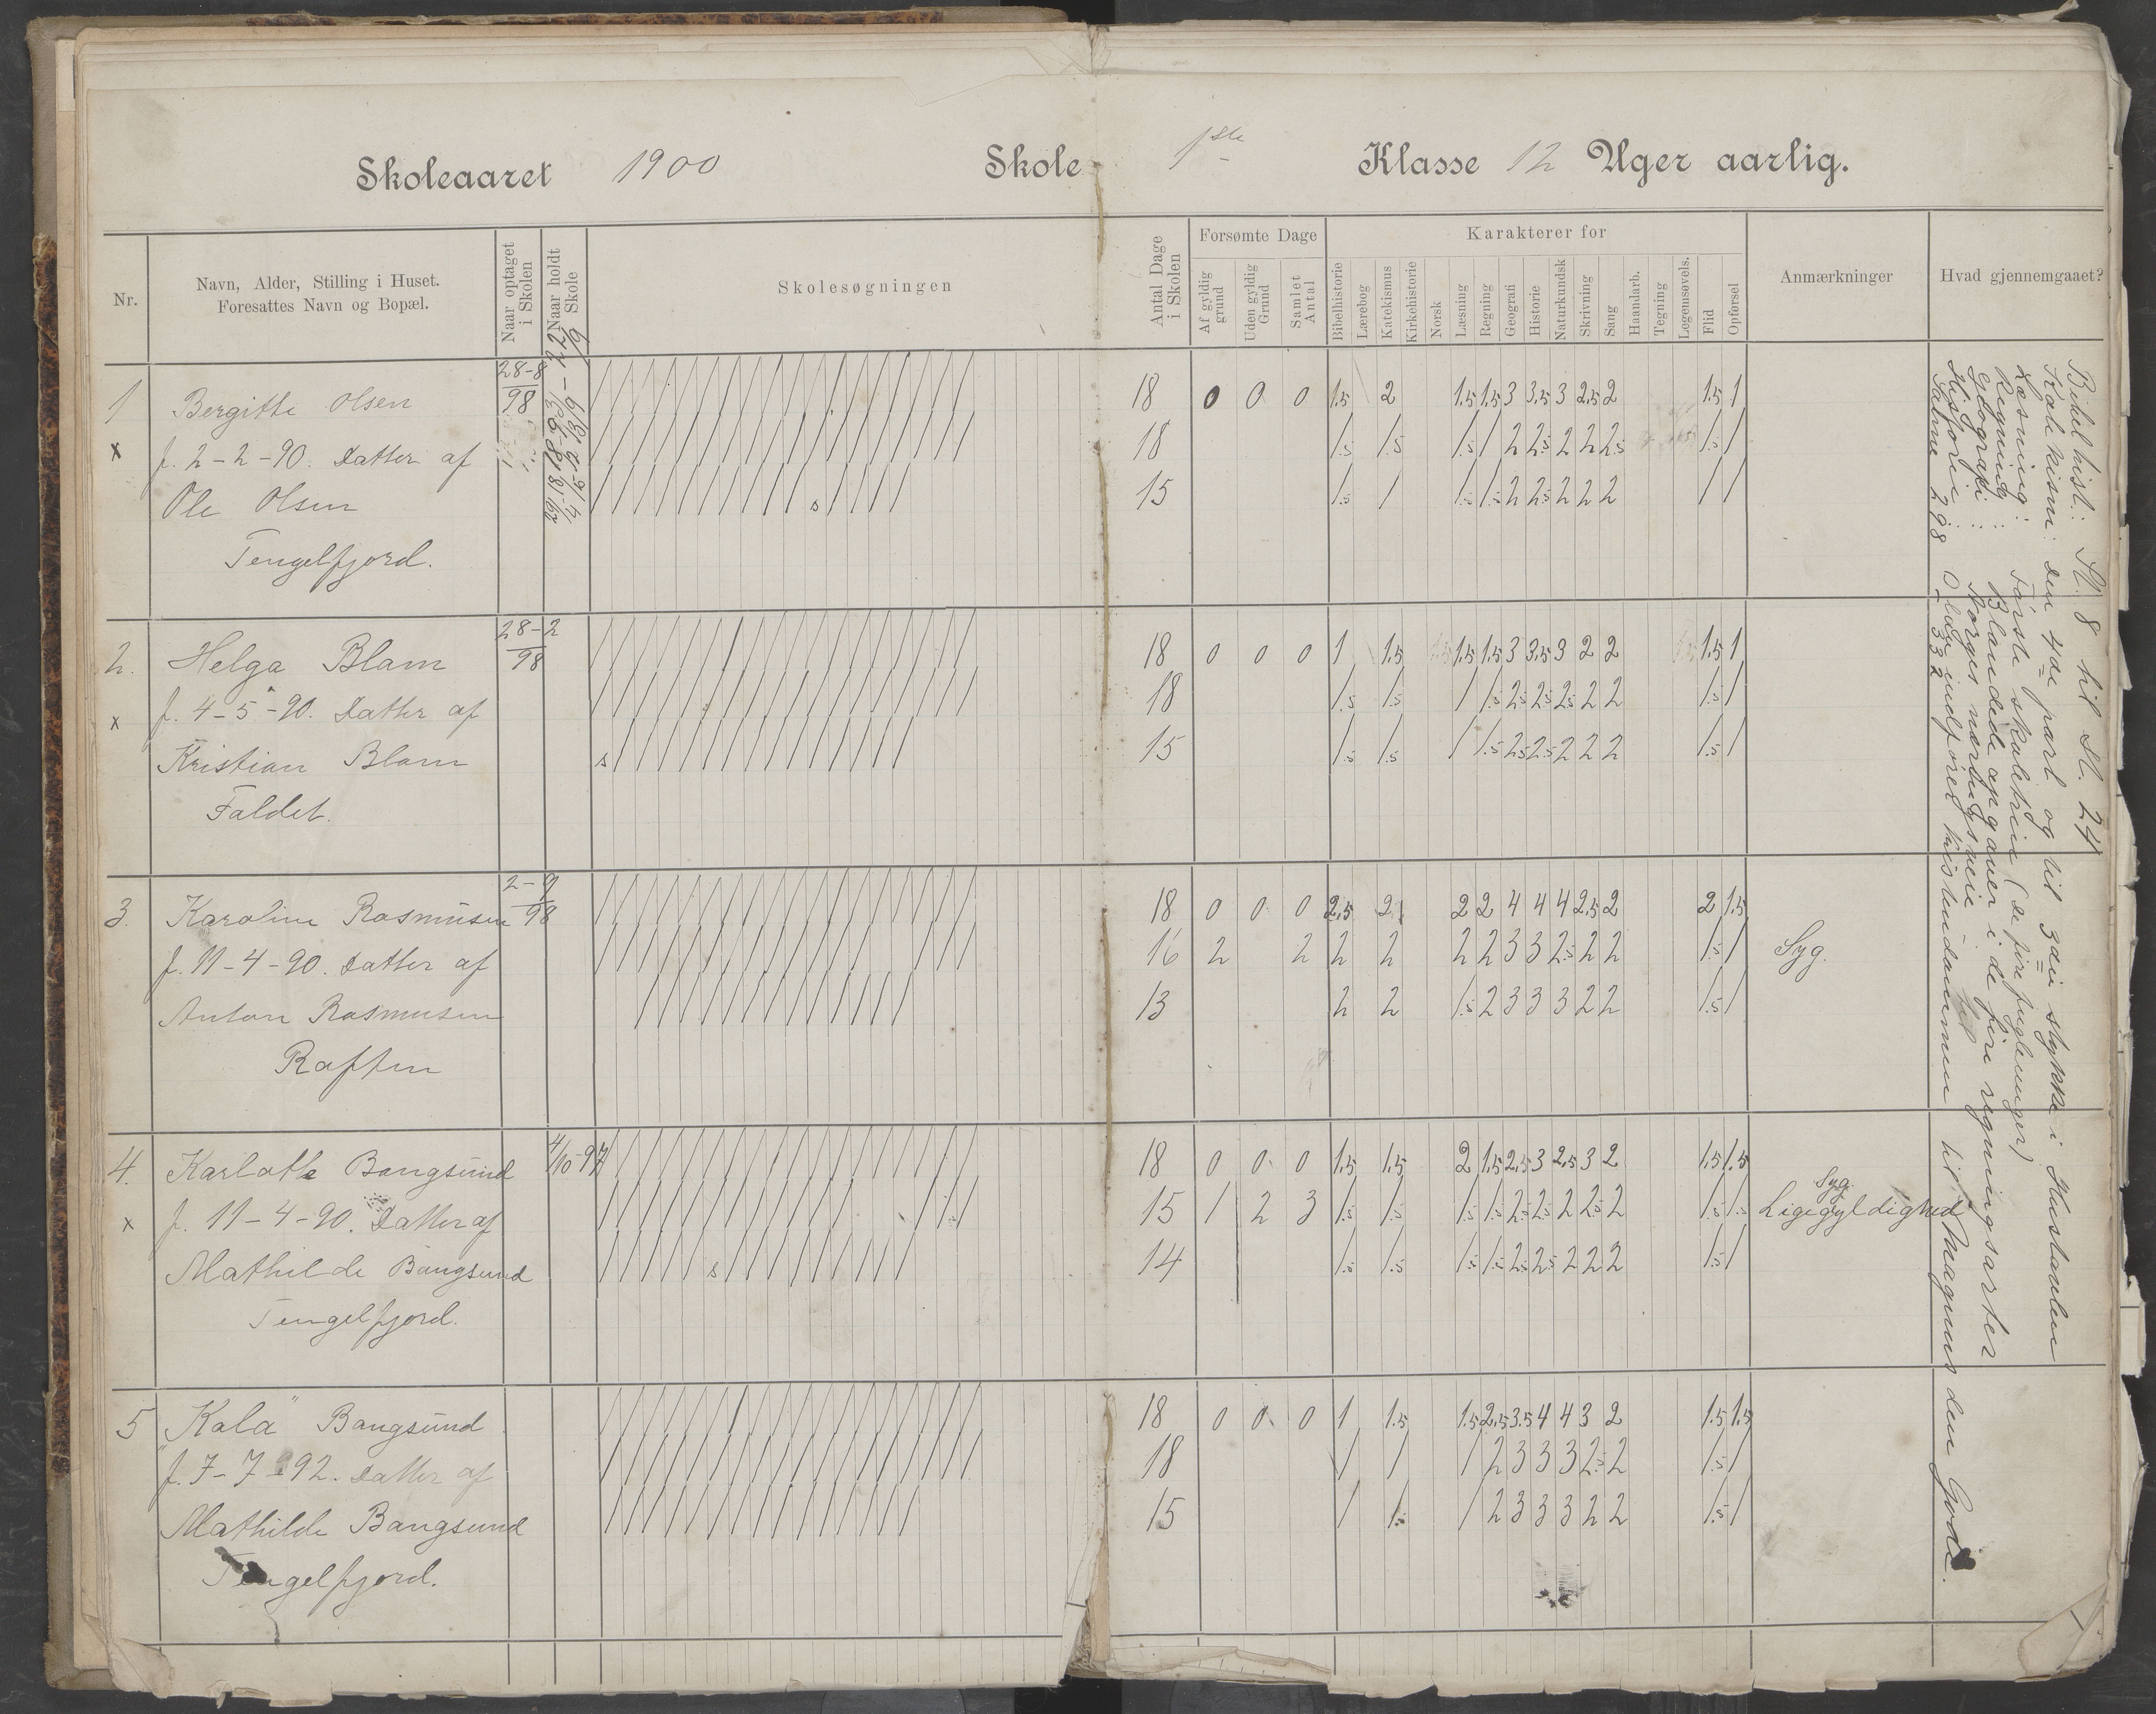 Skoleaaret 1900 Skole 1ste Klasse 12 Uger aarlig.
Nr.
Navn, Alder, Stilling i Huset.
Foresattes Navn og Bopæl.
Naar optaget
i Skolen
Naar holdt
Skole
Skolesøgningen
Antal Dage
i Skolen
Forsømte Dage
Af gyldig
grund
Uden gyldig
Grund
Samlet
Antal
Karakterer for
Bibelhistorie
Lærebog
Katekismus
Kirkehistorie
Norsk
Læsning
Regning
Geografi
Historie
Naturkundsk
Skrivning
Sang
Haandarb.
Tegning
Legemsøvels.
Flid
Opførsel
Anmærkninger
Hvad gjennemgaaet?
1 Bergitte Olsen 28-8 98 18 0 0 0 1.5 2 1.5 1.5 3 3.5 3 2.5 2 1.5 1
x f. 2-2-90. Datter af 18 1.5 1.5 1.5 1 2 2.5 2 2 2.5 1.5 1
Ole Olsen s 15 1.5 1 1.5 1.5 2 2.5 2 2 2 1 1
Tengelfjord.
2. Helga Blam 28-2 98 18 0 0 0 1 1.5 1.5 1.5 3 3.5 3 2 2 1.5 1
x f. 4-5-90. Datter af 18 1.5 1.5 1 1.5 2.5 2.5 2.5 2 2 1.5 1
Kristian Blam s 15 1.5 1.5 1 1.5 2.5 2.5 2 2 2 1.5 1
Faldet.
3. Karoline Rasmusen 2-9 98 18 0 0 0 2.5 2 2 2 4 4 4 2.5 2 2 1.5
f. 11-4-90. Datter af 16 2 2 2 2 2 2 3 3 2.5 2 2 1.5 1 Syg.
Anton Rasmusen 13 2 2 1.5 2 3 3 3 2 2 1.5 1
Raften
4. Karlotte Bangsund 4/10-97 18 0 0 0 1.5 1.5 2 1.5 2.5 3 2.5 3 2 1.5 1.5
x f. 11-4-90. Datter af 15 1 2 3 1.5 1.5 1.5 1.5 2.5 2.5 2 2.5 2 1.5 1.5 Syg. Ligegyldighed
Mathilde Bangsund s 14 1.5 1.5 1.5 1.5 2.5 2.5 2 2 2 1.5 1
Tengelfjord.
5 Kala Bangsund 18 0 0 0 1 1.5 1.5 2.5 3.5 4 4 3 2 1.5 1.5
f. 7-7-92. Datter af 18 1 1 1 2 3 3 3 2.5 2 1.5 1
Mathilde Bangsund 15 1 1.5 1 2 3 3 3 2 2 1.5 1
Tengelfjord.
Bibelhist.: St. 8 til St. 24
Katekisme: den 4de part og til 3die stykke i Hustavlen
Læsning: Første skoletrin (se føie fuglunger)
Regning: Blandede opgaver i de fire regningsarter
Geografi: Norges næringsveie
Historie: Olufu indføret kristendommen til Magnus den Gode.
Salme 298 332